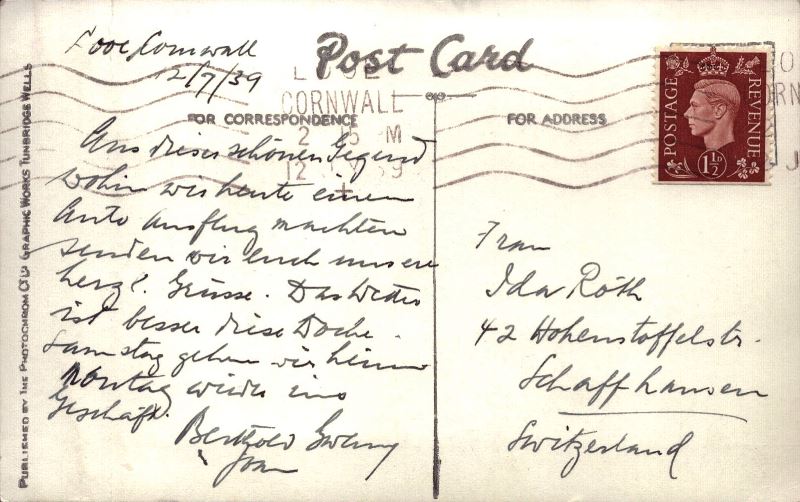 Looe Cornwall
12/7/39
Post Card
LOOE
CORNWALL
2 5 M
12 39
FOR CORRESPONDENCE
FOR ADDRESS
POSTAGE
REVENUE
1½D
Aus dieser schönen Gegend
wohin wir heute einen
Auto Ausflug machten
senden wir Euch unsere
herzl. Grüsse. Das Wetter
ist besser diese Woche.
Samstag gehen wir heim
Montag wieder ins
Geschäft.
Berthold
Joan
Frau
Ida Röth
42 Hohenstoffelstr.
Schaffhausen
Switzerland
PUBLISHED BY THE PHOTOCHROM CO. LTD. GRAPHIC WORKS TUNBRIDGE WELLS